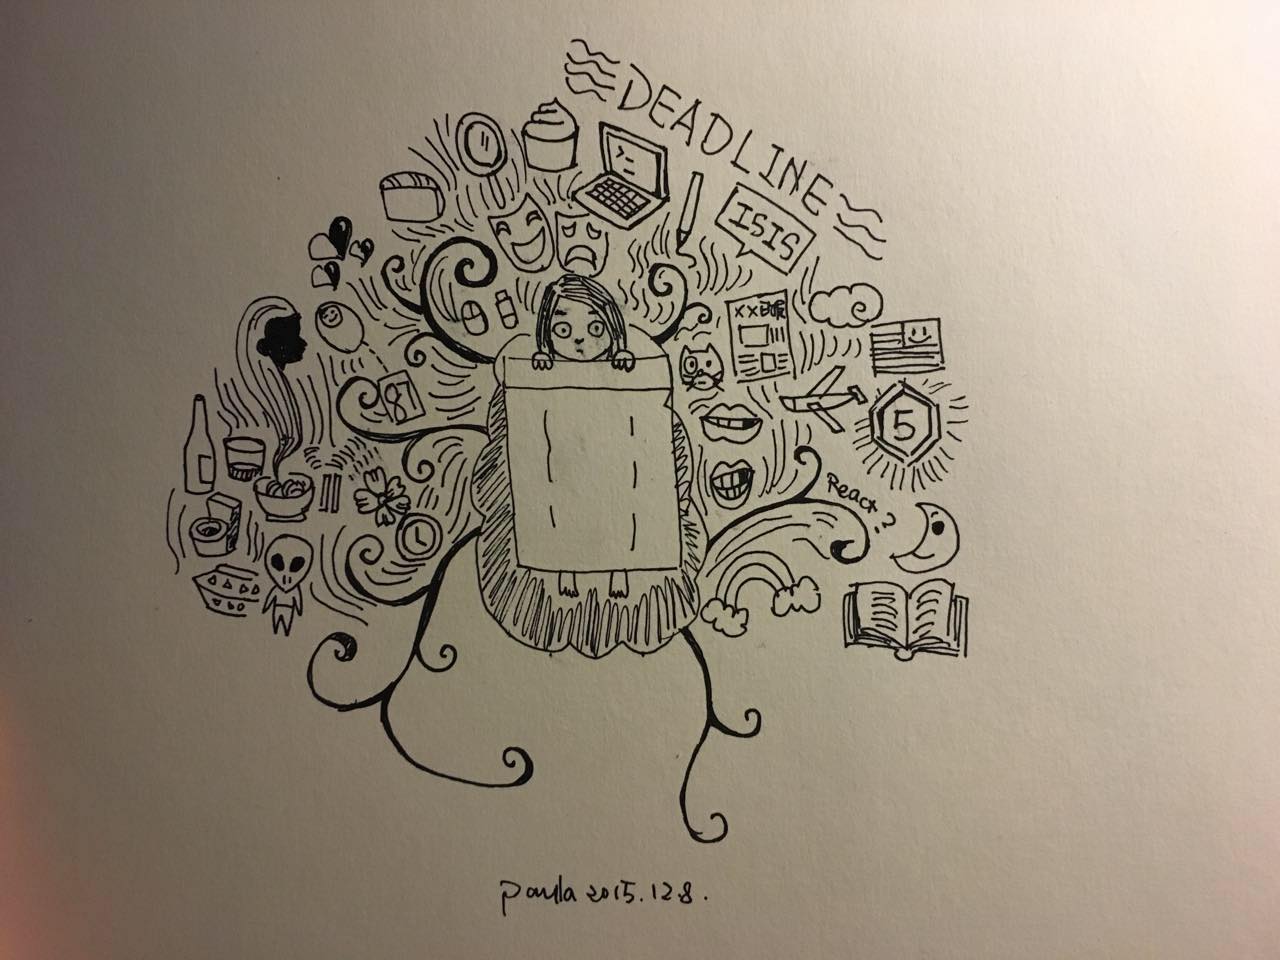 DEADLINE
ISIS
XX日报
5
React?
paula 2015.12.8.